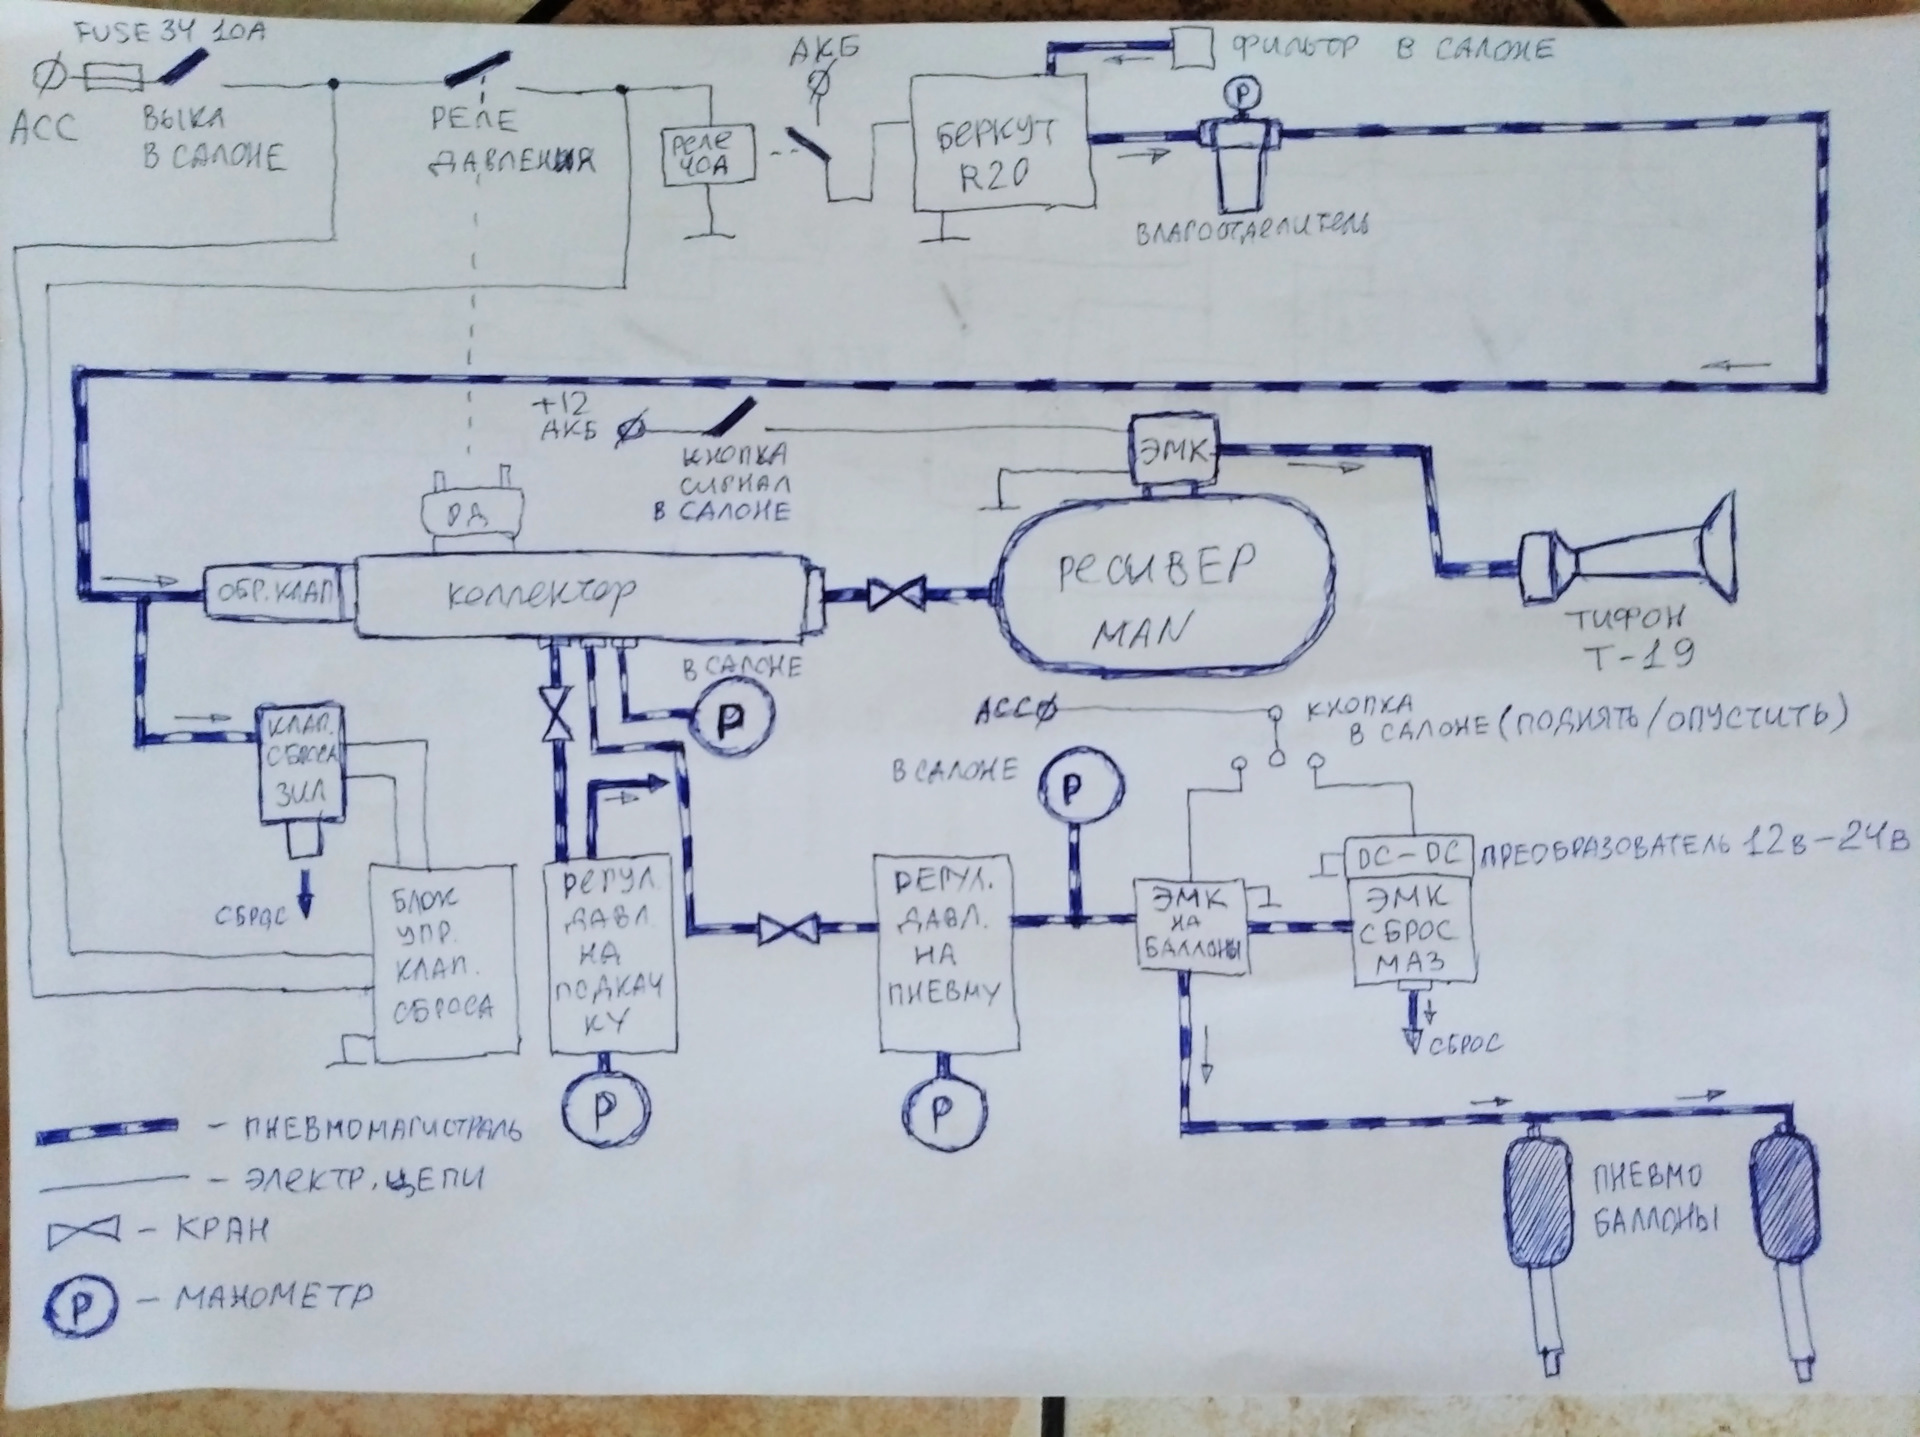 FUSE 34 10А
АСС
ВЫКЛ
В САЛОНЕ
РЕЛЕ
ДАВЛЕНИЯ
РЕЛЕ
40А
АКБ
БЕРКУТ
R20
ФИЛЬТР В САЛОНЕ
P
ВЛАГООТДЕЛИТЕЛЬ
+12
АКБ
КНОПКА
СИГНАЛ
В САЛОНЕ
ЭМК
РД
ОБР.КЛАП
КОЛЛЕКТОР
РЕСИВЕР
MAN
ТИФОН
Т-19
В САЛОНЕ
P
КЛАП.
СБРОСА
ЗИЛ
СБРОС
АСС
КНОПКА
В САЛОНЕ (ПОДНЯТЬ/ОПУСТИТЬ)
В САЛОНЕ
P
DC-DC
ПРЕОБРАЗОВАТЕЛЬ 12В-24В
БЛОК
УПР.
КЛАП.
СБРОСА
РЕГУЛ.
ДАВЛ
НА
ПОДКАЧ
КУ
P
РЕГУЛ.
ДАВЛ.
НА
ПНЕВМУ
P
ЭМК
НА
БАЛЛОНЫ
ЭМК
СБРОС
МАЗ
СБРОС
ПНЕВМО
БАЛЛОНЫ
- ПНЕВМОМАГИСТРАЛЬ
- ЭЛЕКТР. ЦЕПИ
- КРАН
P - МАНОМЕТР